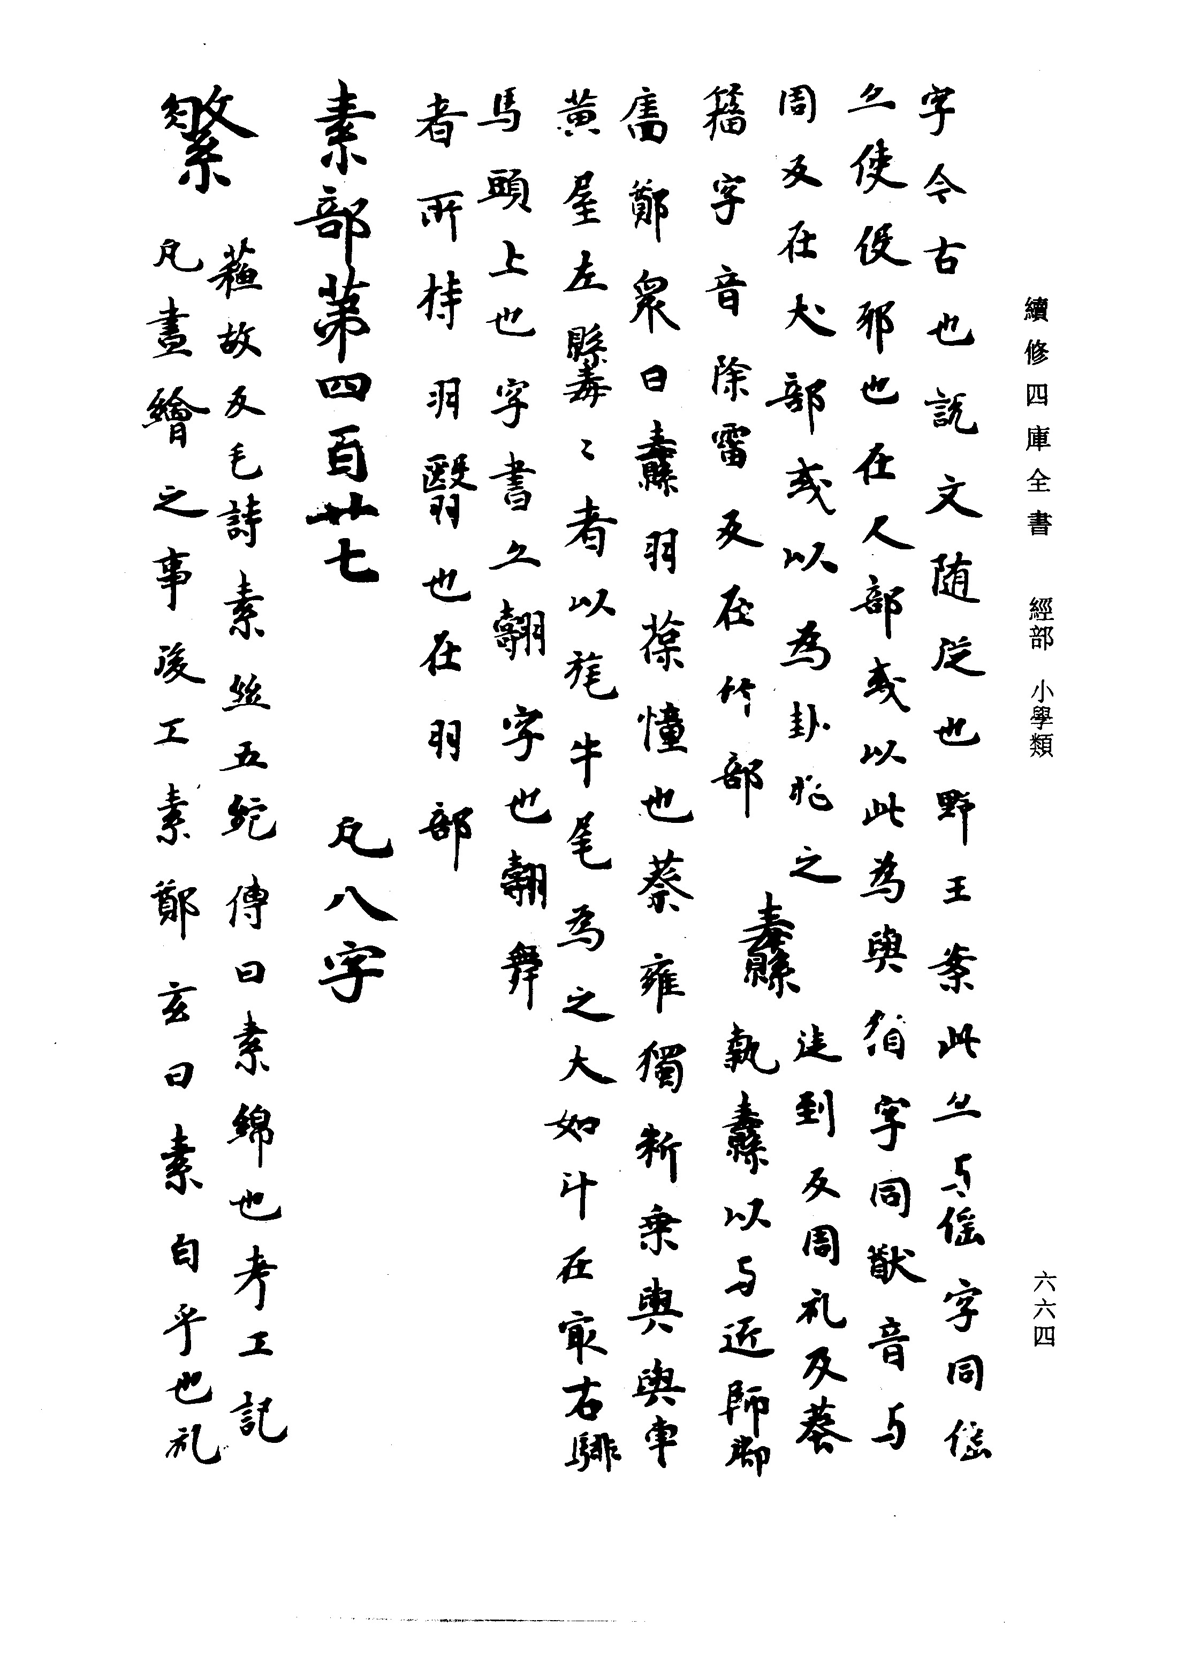 續修四庫全書 經部 小學類
六六四
字今古也說文随從也野王案此亦与傜字同傜
亦使役邪也在人部或以此為輿䌛字同猷音与
周反在犬部或以為卦兆之
籀字音除霤反在竹部
纛徒到反周礼及葬執纛以与近師鄭
舊鄭衆曰纛羽葆幢也蔡雍獨斷乗輿輿車
黄屋左縣毒〻者以旄牛尾為之大如斗在冣右騑
馬頭上也字書亦翿字也翿舞
者所持羽翳也在羽部
素部第四百廿七 凡八字
䋤蘓故反毛詩素絲五紽傳曰素綿也考工記
凡畫繪之事後工素鄭玄曰素白乎也礼